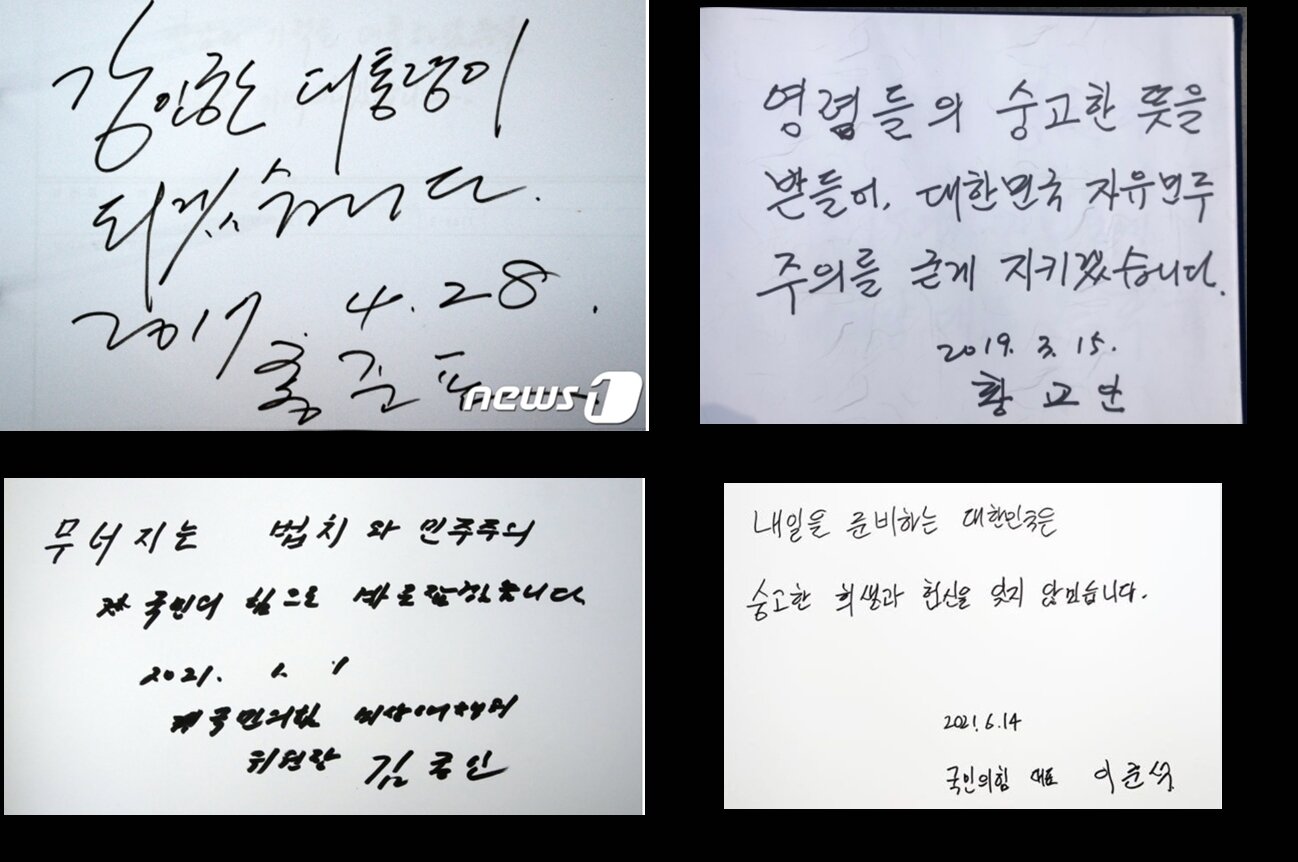 강인한 대통령이
되겠습니다.
2017 4.28.
홍준표
news1
영령들의 숭고한 뜻을
받들어, 대한민국 자유민주
주의를 굳게 지키겠습니다.
2019. 3. 15.
황교안
무너지는 법치와 민주주의
국민의 힘으로 바로잡겠습니다
2021. 1. 1
국민의힘 비상대책위
위원장 김종인
내일을 준비하는 대한민국은
숭고한 희생과 헌신을 잊지 않겠습니다.
2021.6.14
국민의힘 대표 이준석